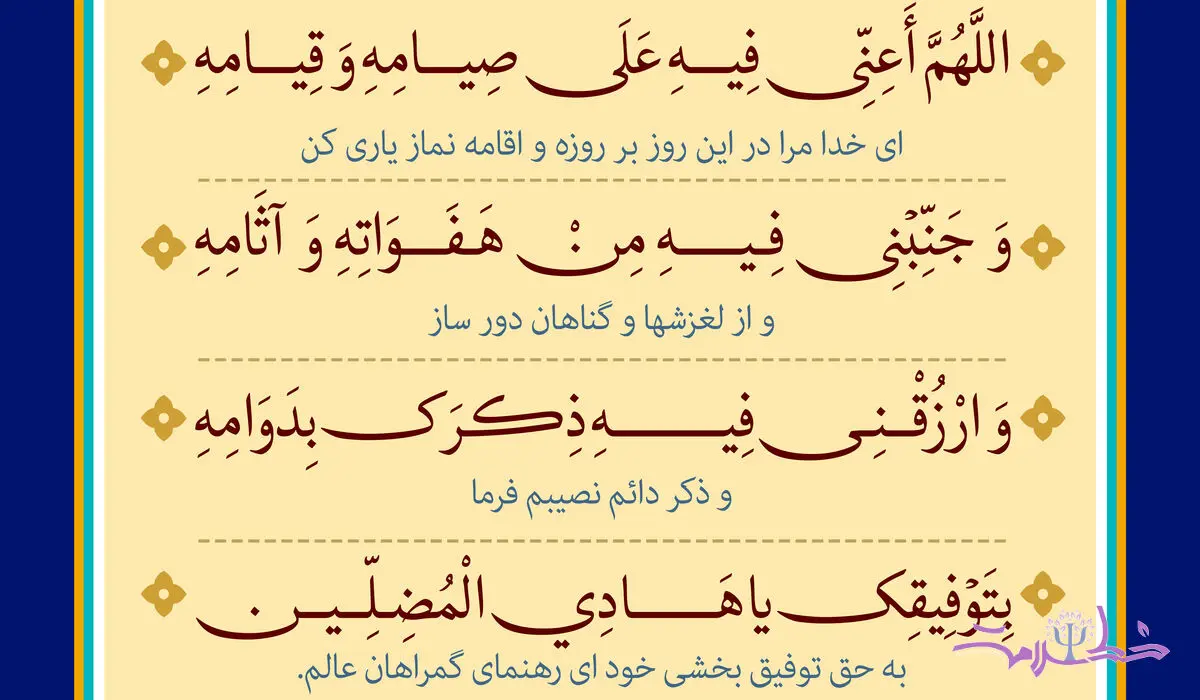 اللَّهُمَّ أَعِنِّي فِيهِ عَلَى صِيَامِهِ وَ قِيَامِهِ
ای خدا مرا در این روز بر روزه و اقامه نماز یاری کن
وَ جَنِّبْنِي فِيهِ مِنْ هَفَوَاتِهِ وَ آثَامِهِ
و از لغزشها و گناهان دور ساز
وَ ارْزُقْنِي فِيهِ ذِكْرَكَ بِدَوَامِهِ
و ذکر دائم نصیبم فرما
بِتَوْفِيقِكَ يَا هَادِي الْمُضِلِّينَ
به حق توفیق بخشی خود ای رهنمای گمراهان عالم.
خط سلامت